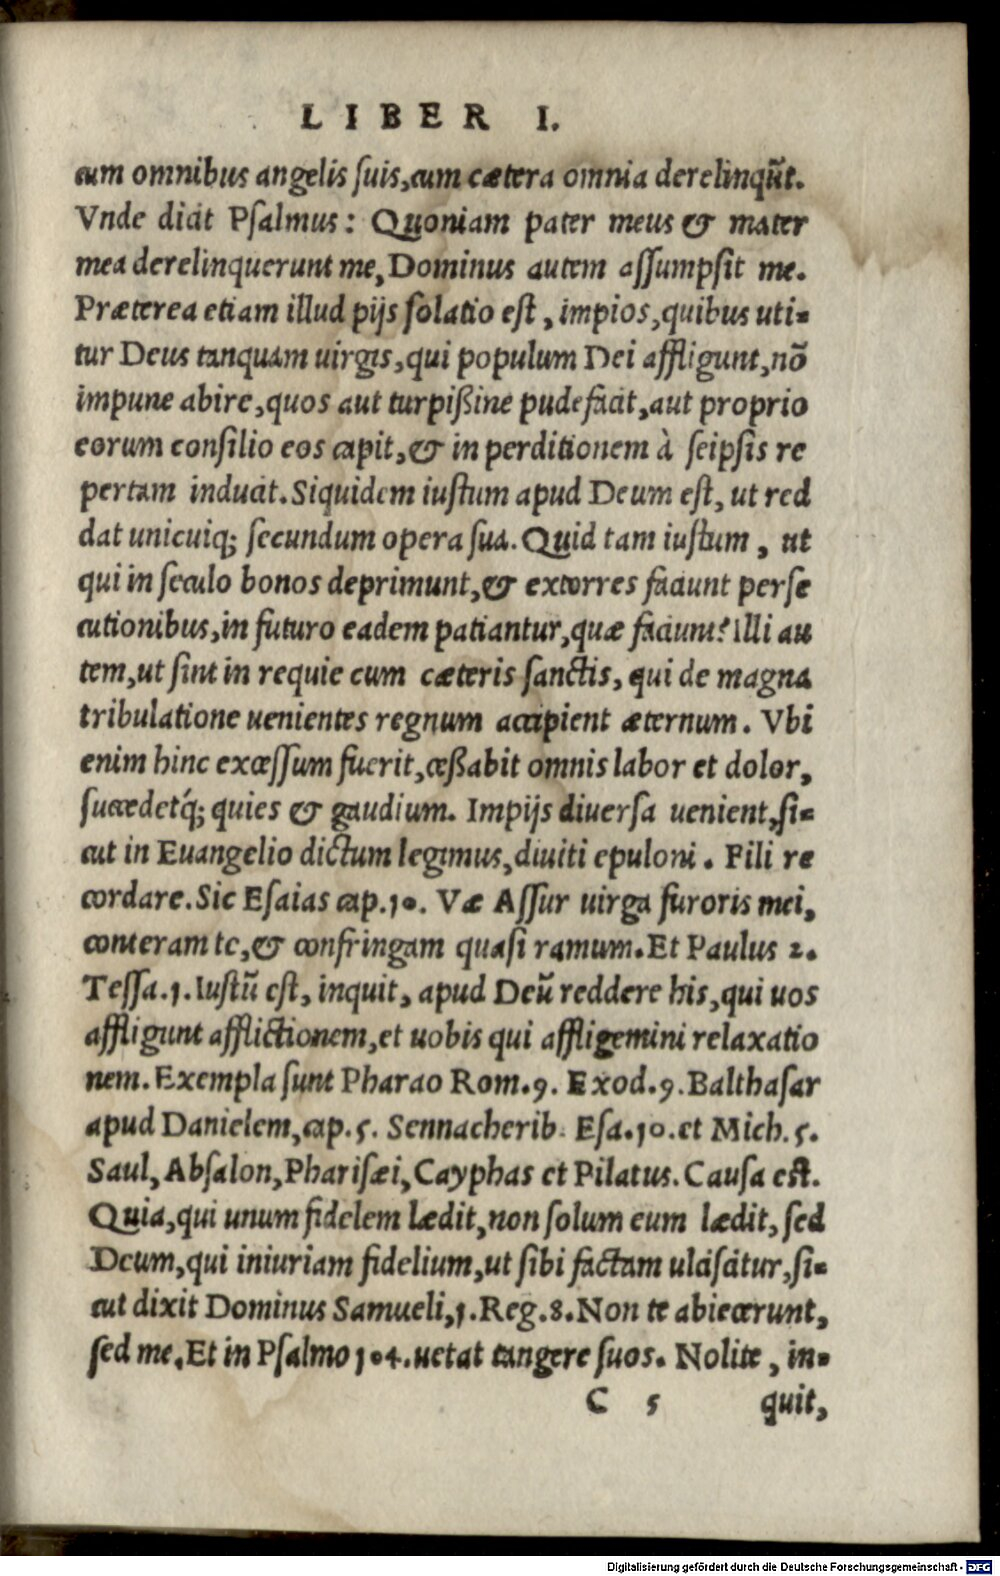 LIBER I.
cum omnibus angelis suis, cum cætera omnia derelinqũt.
Vnde dicit Psalmus: Quoniam pater meus & mater
mea derelinquerunt me, Dominus autem assumpsit me.
Præterea etiam illud pijs solatio est, impios, quibus uti-
tur Deus tanquam uirgis, qui populum Dei affligunt, nõ
impune abire, quos aut turpißine pudefacit, aut proprio
eorum consilio eos capit, & in perditionem à seipsis re
pertam inducit. Siquidem iustum apud Deum est, ut red
dat unicuiq; secundum opera sua. Quid tam iustum, ut
qui in seculo bonos deprimunt, & extorres faciunt perse
cutionibus, in futuro eadem patiantur, quæ faciunt? Illi au
tem, ut sint in requie cum cæteris sanctis, qui de magna
tribulatione uenientes regnum accipient æternum. Vbi
enim hinc excessum fuerit, ceßabit omnis labor et dolor,
succedetq́; quies & gaudium. Impijs diuersa uenient, si-
cut in Euangelio dictum legimus, diuiti epuloni. Fili re
cordare. Sic Esaias cap. 10. Væ Assur uirga furoris mei,
conteram te, & confringam quasi ramum. Et Paulus 2.
Tessa. 1. Iustũ est, inquit, apud Deũ reddere his, qui uos
affligunt afflictionem, et uobis qui affligemini relaxatio
nem. Exempla sunt Pharao Rom. 9. Exod. 9. Balthasar
apud Danielem, cap. 5. Sennacherib. Esa. 10. et Mich. 5.
Saul, Absalon, Pharisæi, Cayphas et Pilatus. Causa est.
Quia, qui unum fidelem lædit, non solum eum lædit, sed
Deum, qui iniuriam fidelium, ut sibi factam ulciscitur, si-
cut dixit Dominus Samueli, 1. Reg. 8. Non te abiecerunt,
sed me. Et in Psalmo 104. uetat tangere suos. Nolite, in-
C 5 quit,
Digitalisierung gefördert durch die Deutsche Forschungsgemeinschaft - DFG